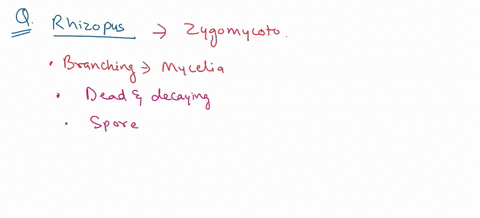 Q. Rhizopus → Zygomycoto.
• Branching → Mycelia
• Dead & decaying
• Spore